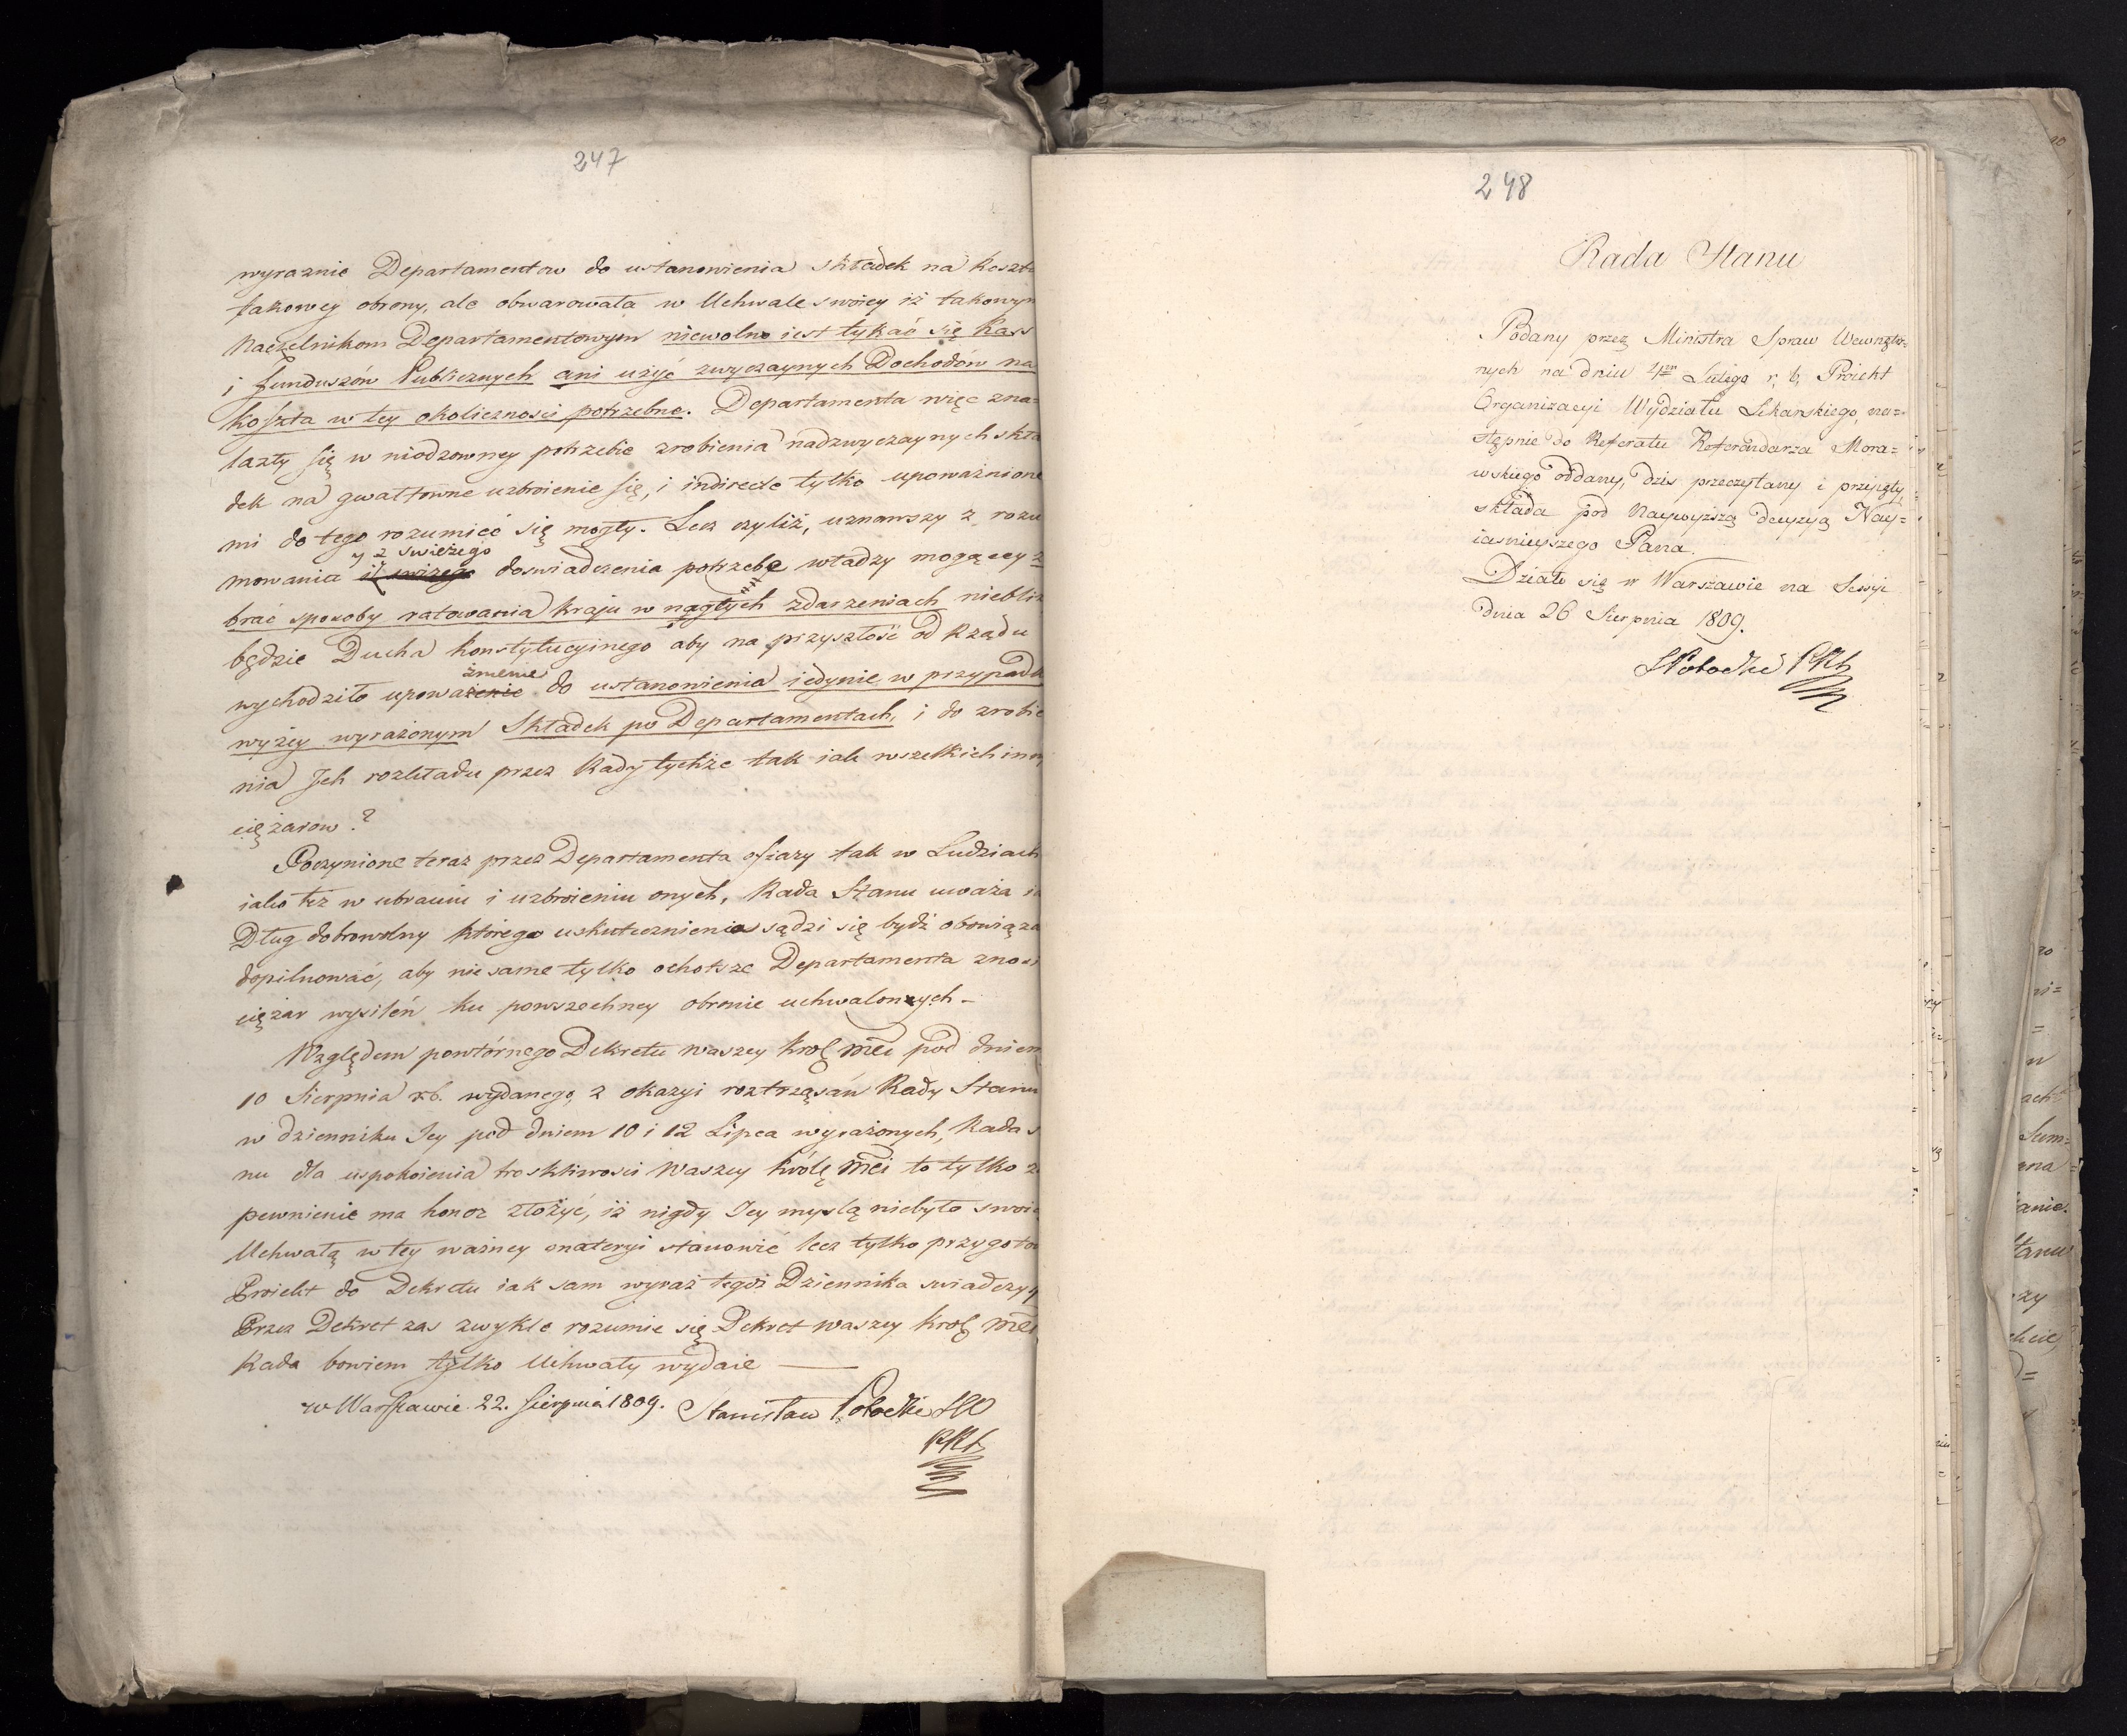 247
wyraznie Departamentow do ustanowienia składek na koszta
takowey obrony, ale obwarowała w Uchwale swoiey iż takowym
Naczelnikom Departamentowym niewolno iest tykać się Kass
i funduszów Publicznych ani użyć zwyczaynych Dochodów na
koszta w tey okoliczności potrzebne. Departamenta więc zna=
lazły się w niodzowney potrzebie zrobienia nadzwyczaynych skła
dek na gwałtowne uzbroienie się, i indirecte tylko upoważnione
mi do tego rozumieć się mogły. Lecz czyliż, uznawszy z rozu
y z swieżego
mowania doswiadczenia potrzebę władzy mogącey
brać sposoby ratowania kraju w nagłych zdarzeniach niebliż
będzie Ducha konstytucyinego aby na przyszłość od Rządu
żnienie
wychodziło upoważenie do ustanowienia iedynie w przypadk
wyżey wyrażonym Składek po Departamentach, i do zrobie
nia Jch rozkładu przez Rady tychże tak iak wszelkich inny
ciężarow?
Poczynione teraz przez Departamenta ofiary tak w Ludziach
iako też w ubraniu i uzbroieniu onych, Rada Stanu uważa
Dług dobrowolny którego uskutecznienia sądzi się bydź obowiąza
dopilnować, aby nie same tylko ochotsze Departamenta znosi
ciężar wysileń ku powszechney obronie uchwalonych –
Względem powtórnego Dekretu Waszey Krolę Mci pod dniem
10 Sierpnia r.b. wydanego, z okazyi roztrząsań Rady Stanu
w dzienniku Jey pod dniem 10 i 12 Lipca wyrażonych, Rada S
nu dla uspokoienia troskliwosci Waszey Królę Mci to tylko za
pewnienie ma honor złożyć, iż nigdy Jey myslą niebyło swoią
Uchwałą w tey ważney materyi stanowić lecz tylko przygotow
Proiekt do Dekretu iak sam wyraz tegoż Dziennika swiadczy
Przez Dekret zas zwykle rozumie się Dekret Waszey Krolę Mci
Rada bowiem tylko Uchwały wydaie —
w Warszawie 22. Sierpnia 1809. Stanisław Potocki
248
Rada Stanu
Podany przez Ministra Spraw Wewnętrz=
nych na dniu 4m Lutego r, b, Proiekt
Organizacyi Wydziału Lekarskiego, na=
stępnie do Referatu Referendarza Mora=
wskiego oddany, dzis przeczytany i przyięty,
składa pod Naywyższą decyzyą Nay=
iasnieyszego Pana.
Działo się w Warszawie na Sessyi
dnia 26 Sierpnia 1809.
SPotocki